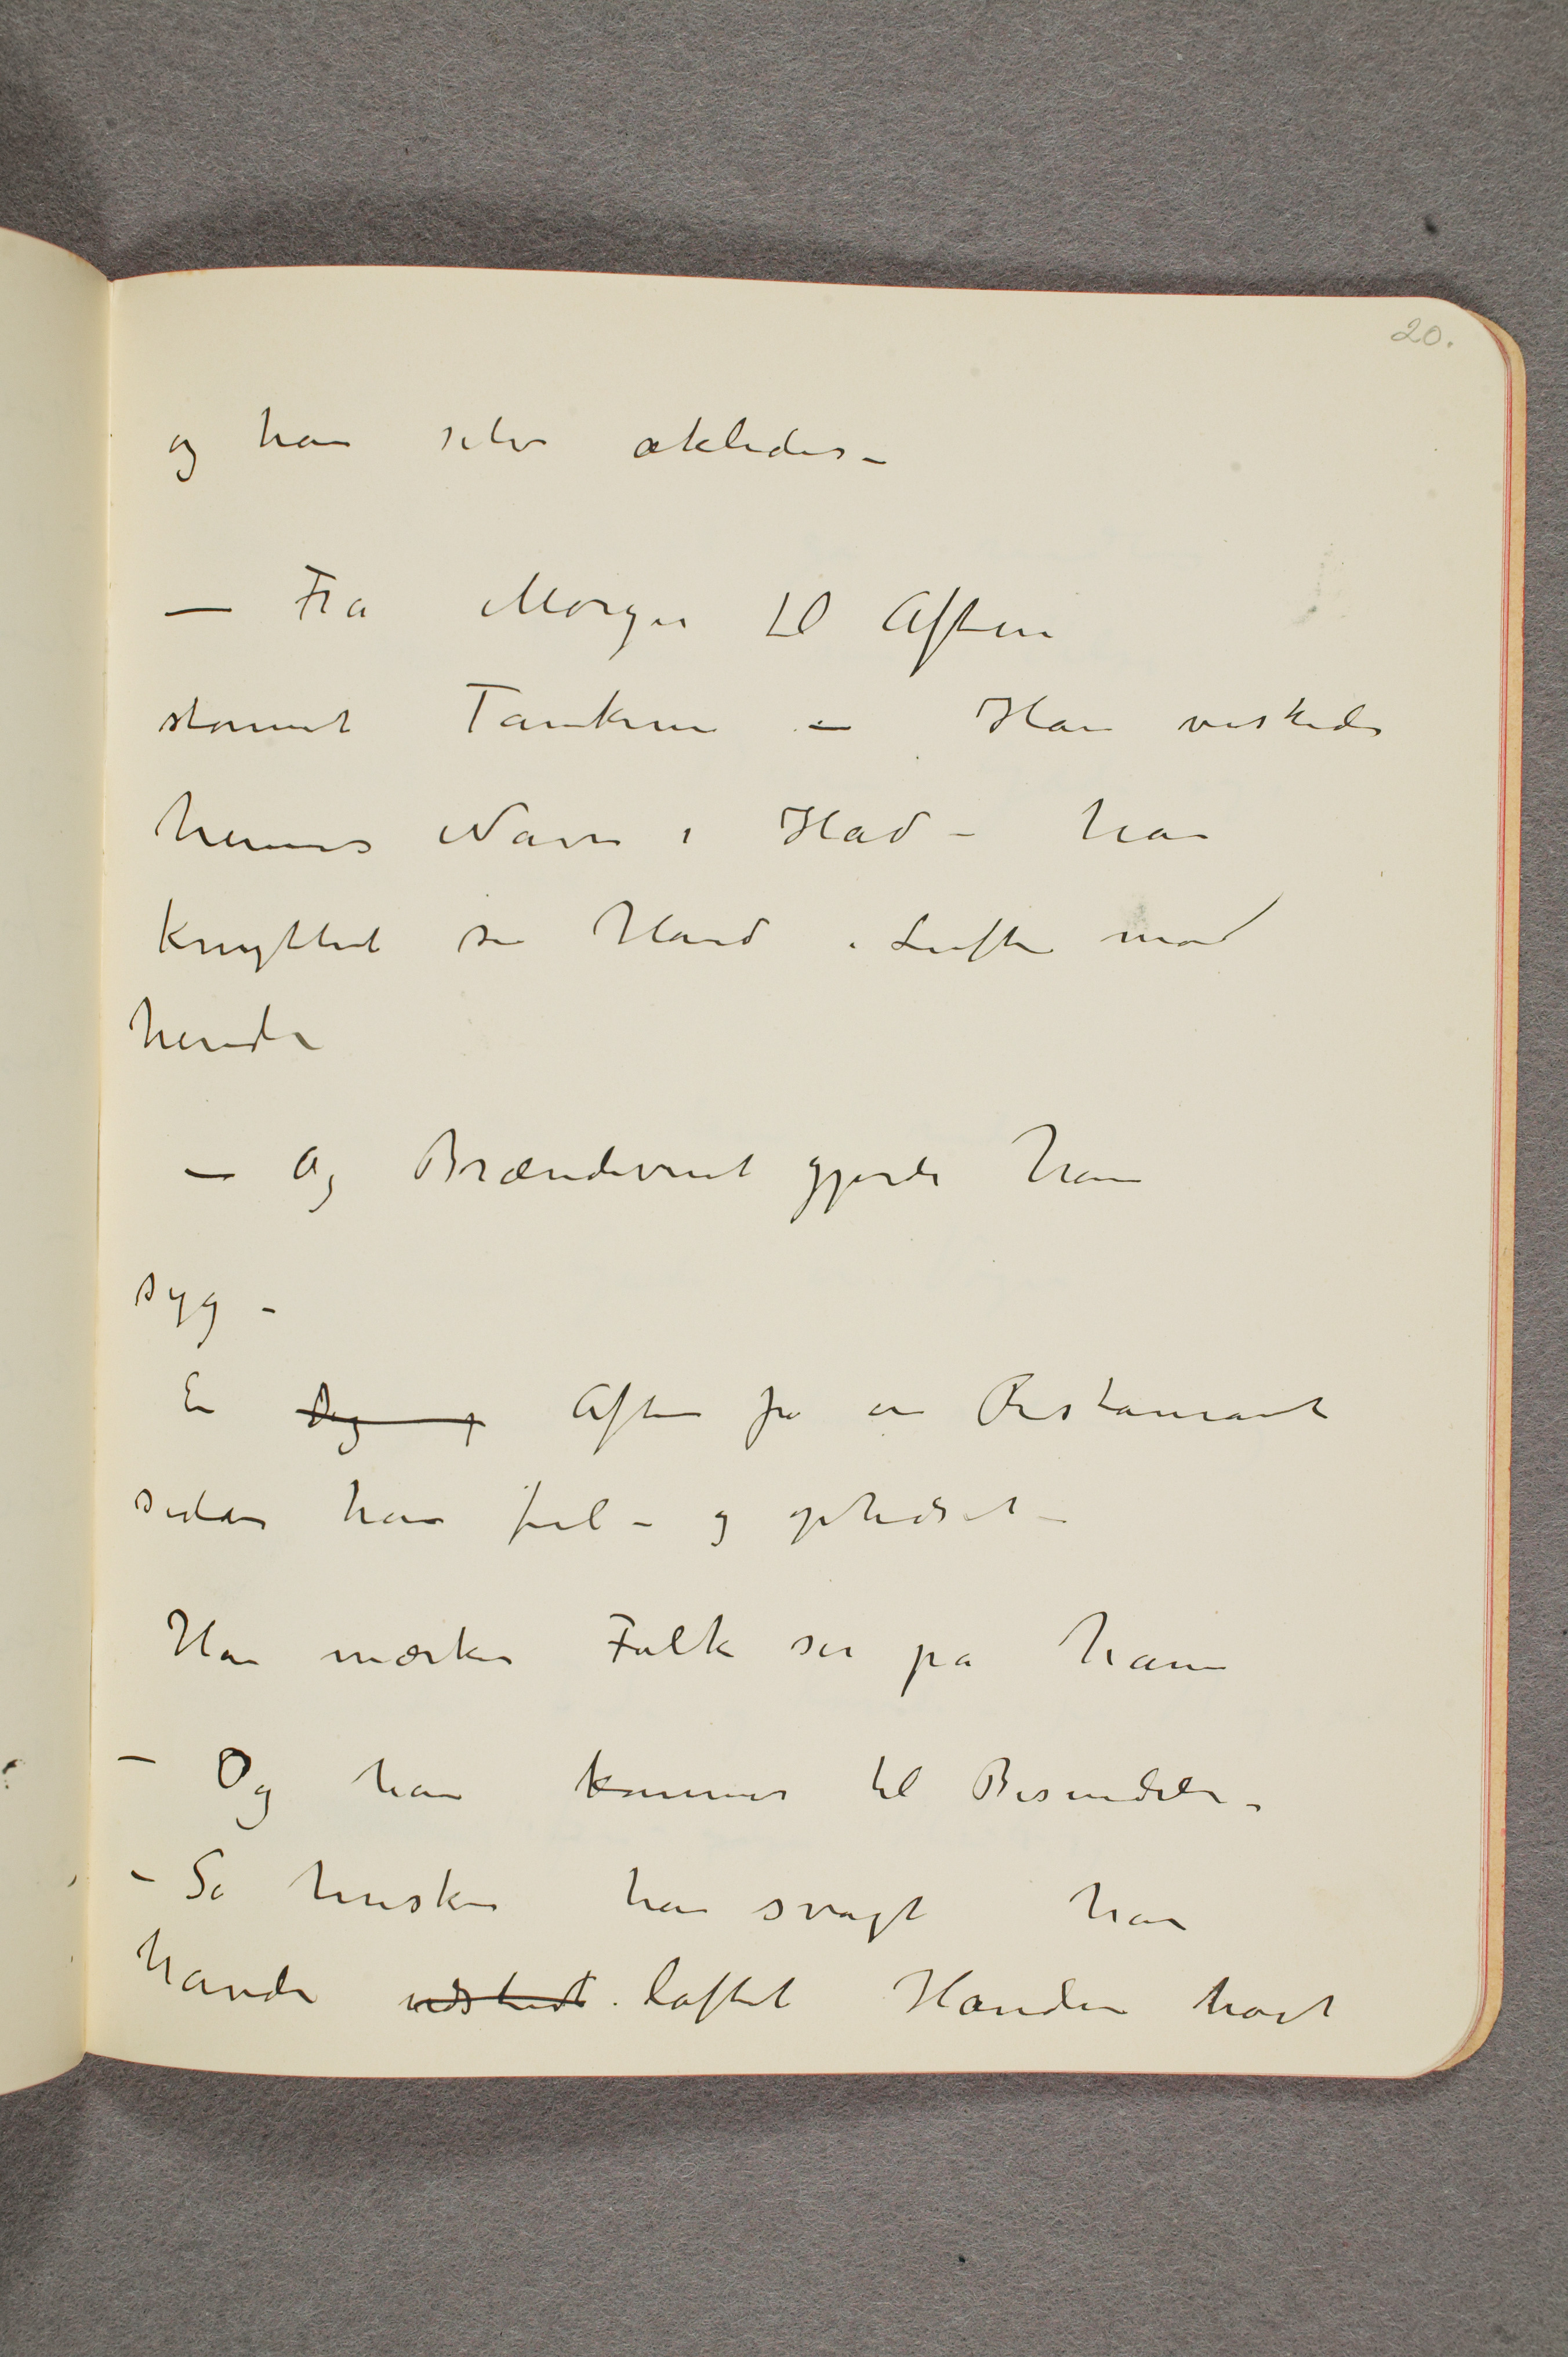 20.
og han selv ækledes –
– Fra Morgen til Aften
stormet Tankerne – Han viskede
hennes Navn i Had – han
knyttet sin Hånd i Luften mod
hende
– Og Brændevinet gjorde ham
syg –
En Dag på Aften på en Restaurant
sidder han fuld – og ophidset –
Han mærker Folk ser på ham
– Og han kommer til Besindelse –
– Så husker han svagt han
havde udstødt løftet Hånden havt